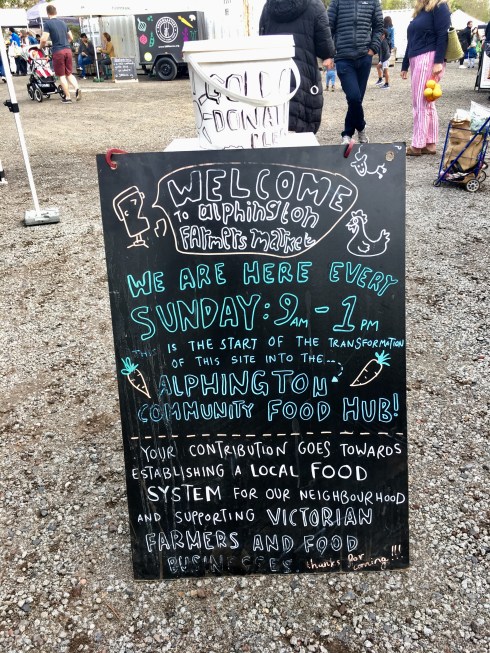 GOLD
DONAT
WELCOME
To alphington
FARMERS MARKET
WE ARE HERE EVERY
SUNDAY: 9AM - 1PM
THIS IS THE START OF THE TRANSFORMATION
OF THIS SITE INTO THE...
ALPHINGTON
COMMUNITY FOOD HUB!
YOUR CONTRIBUTION GOES TOWARDS
ESTABLISHING A LOCAL FOOD
SYSTEM FOR OUR NEIGHBOURHOOD
AND SUPPORTING VICTORIAN
FARMERS AND FOOD
BUSINESSES. thanks for
coming!!!